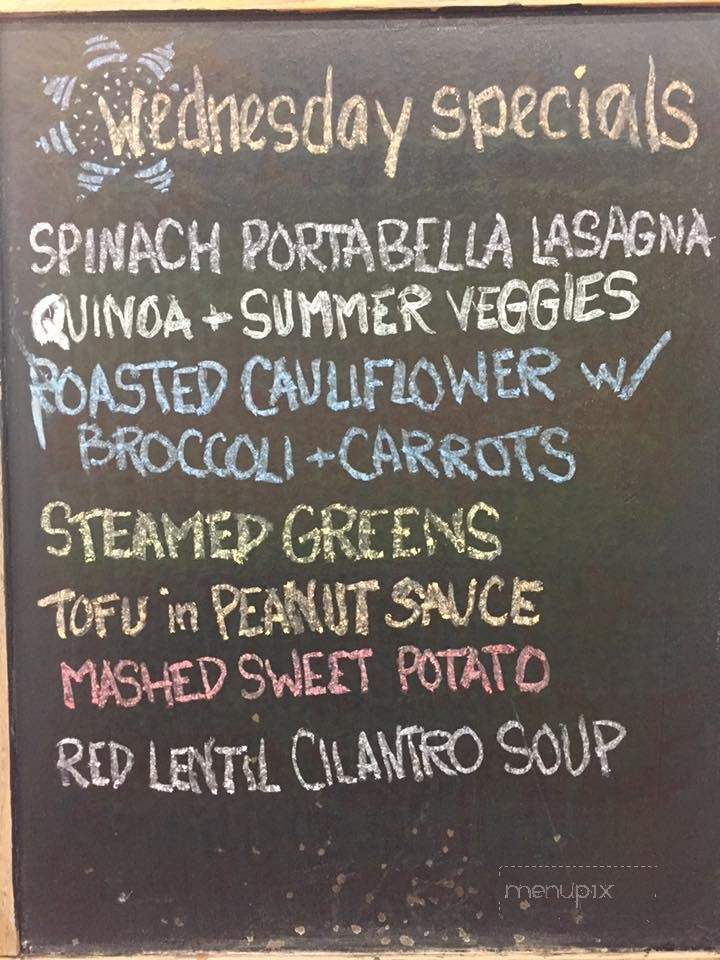 wednesday specials
SPINACH PORTABELLA LASAGNA
QUINOA + SUMMER VEGGIES
ROASTED CAULIFLOWER w/
BROCCOLI + CARROTS
STEAMED GREENS
TOFU in PEANUT SAUCE
MASHED SWEET POTATO
RED LENTIL CILANTRO SOUP
menupix